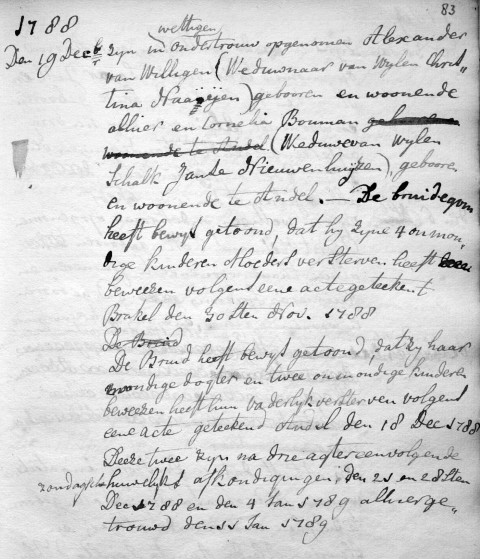 83
1788
wettigen
Den 19 Decbr zyn in ondertrouw opgenomen Alexander
van Willigen (Weduwnaar van Wylen Chris„
tina Naaijen) gebooren en woonende
alhier en Cornelia Bouman gebooren
woonende te Andel (Weduwe van Wylen
Schalk Janse Nieuwenhuijzen), gebooren
en woonende te Andel. — De bruidegom
heeft bewys getoond, dat hy zyne 4 onmon„
dige kinderen Moeders versterven heeft
beweezen volgens eene acte geteekent
Brakel den 30sten Nov. 1788
De Bruid
De Bruid heeft bewys getoond, dat zy haar
mondige dogter en twee onmondige kinderen
beweezen heeft hun vaderlyk versterven volgens
eene acte geteekend Andel den 18 Dec 1788
Deeze twee zyn na drie agtereenvolgende
zondagsche huwelyks afkondigingen, den 21 en 28sten
Dec 1788 en den 4 Jan 1789 alhier ge„
trouwd den 11 Jan 1789